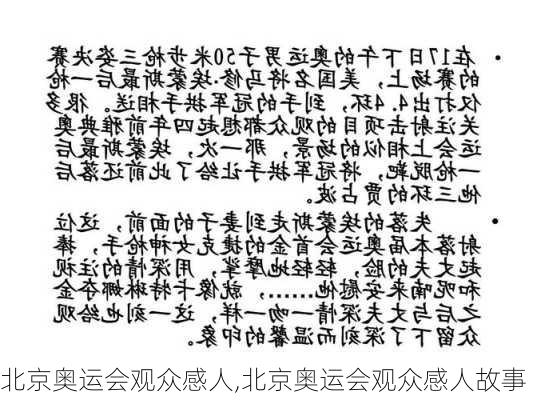 • 在17日下午的奥运男子50米步枪三姿决赛
的赛场上，美国名将马修·埃蒙斯最后一枪
仅打出4.4环，到手的冠军拱手相送。很多
关注射击项目的观众都想起四年前雅典奥
运会上相似的场景，那一次，埃蒙斯最后
一枪脱靶，将冠军拱手让给了此前还落后
他三环的贾占波。
• 失落的埃蒙斯走到妻子的面前，这位
射落本届奥运会首金的捷克女神枪手，捧
起丈夫的脸，轻轻地摩挲，用深情的注视
和呢喃来安慰他……，就像卡特琳娜夺金
之后与丈夫深情一吻一样，这一刻也给观
众留下了深刻而温馨的印象。
北京奥运会观众感人,北京奥运会观众感人故事